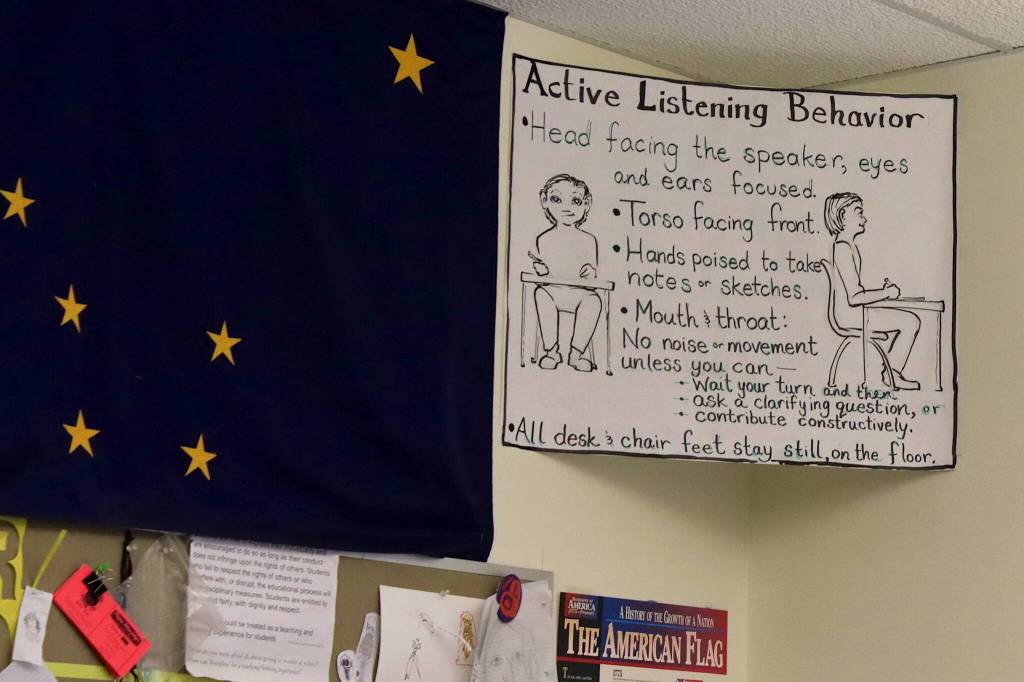 Active Listening Behavior
•Head facing the speaker, eyes
and ears focused.
•Torso facing front.
•Hands poised to take
notes or sketches.
•Mouth & throat:
No noise or movement
unless you can—
- Wait your turn and then
- ask a clarifying question, or
- contribute constructively.
•All desk & chair feet stay still, on the floor.
are encouraged to do so as long as their conduct
does not infringe upon the rights of others. Students
who fail to respect the rights of others or who
with, or disrupt, the educational process will
disciplinary measures. Students are entitled to
fairly, with dignity and respect.
be treated as a teaching and
experience for students
AMERICA
A HISTORY OF THE GROWTH OF A NATION
THE AMERICAN FLAG
1775